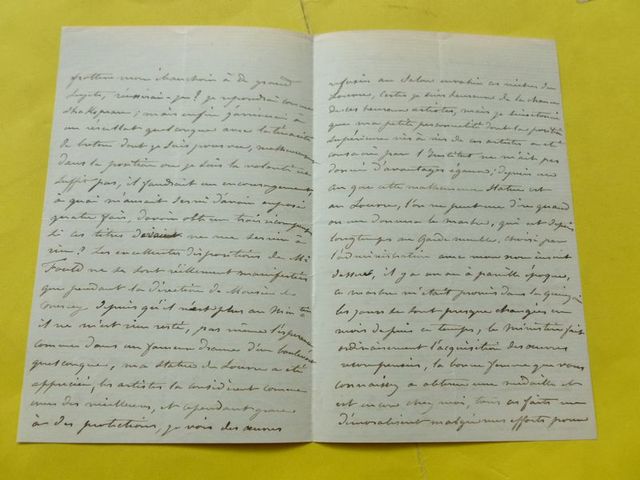 frotter mon ébauchoir à de grands
sujets, réussirai-je? je repondrai comme
Shakspeare; mais enfin j'arriverai à
un resultat quelconque avec la ténacité
de lutter dont je suis pourvu, malheureusement
dans la position ou je suis la volonté ne
suffit pas, il faudrait un encouragement,
à quoi m'aurait servi d'avoir exposé
quatre fois, d'avoir obtenu trois récompenses
si ces titres devaient ne me servir à
rien? Les excellentes dispositions de M.
Fould ne se sont réellement manifestées
que pendant la direction de Monsieur de
Mercey depuis qu'il n'est plus au Ministère
il ne m'est rien resté, pas même l'espérance
comme dans un fameux drame d'un boulevard
quelconque, ma statue du Louvre a été
appréciée, les artistes la considèrent comme
une des meilleures, et cependant grace
à des protections, je vois des œuvres
refusées au Salon envahir les niches du
Louvre, Certes je suis heureux de la chance
de ces heureux artistes, mais je suis étonné
que ma petite personnalité dont la position
supérieure vis à vis de ces artistes a été
consacrée par l'Institut ne m'ait pas
donné d'avantages égaux; depuis un
an que cette malheureuse statue est
au Louvre, l'on ne peut me dire quand
on me donnera le marbre, qui est depuis
longtemps au Garde meuble, choisi par
l'administration avec mon nom inscrit
dessus, il y a un an à pareille époque,
ce marbre m'était promis dans la quinzaine
les jours se sont presque changés en
mois depuis ce temps, le Ministère fait
ordinairement l'acquisition des œuvres
récompensées, la bonne femme que vous
connaissez a obtenu une médaille et
est encore chez moi, tous ces faits me
démoralisent malgré mes efforts pour